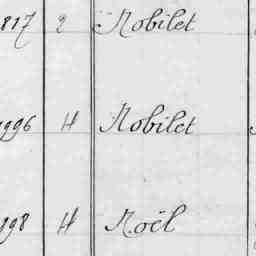 817 2 Nobilet
1996 H Nobilet
898 H Noël